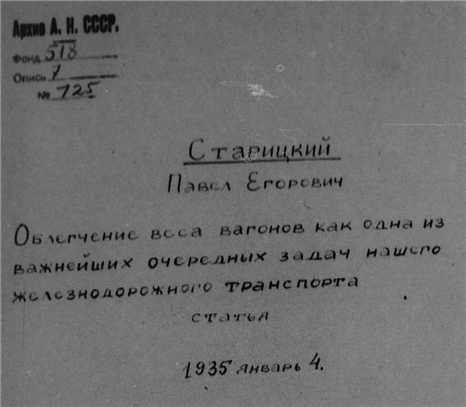 Архив А. Н. СССР.
Фонд 518
Опись 1
№ 125
Старицкий
Павел Егорович
Облегчение веса вагонов как одна из
важнейших очередных задач нашего
железнодорожного транспорта
статья
1935 январь 4.